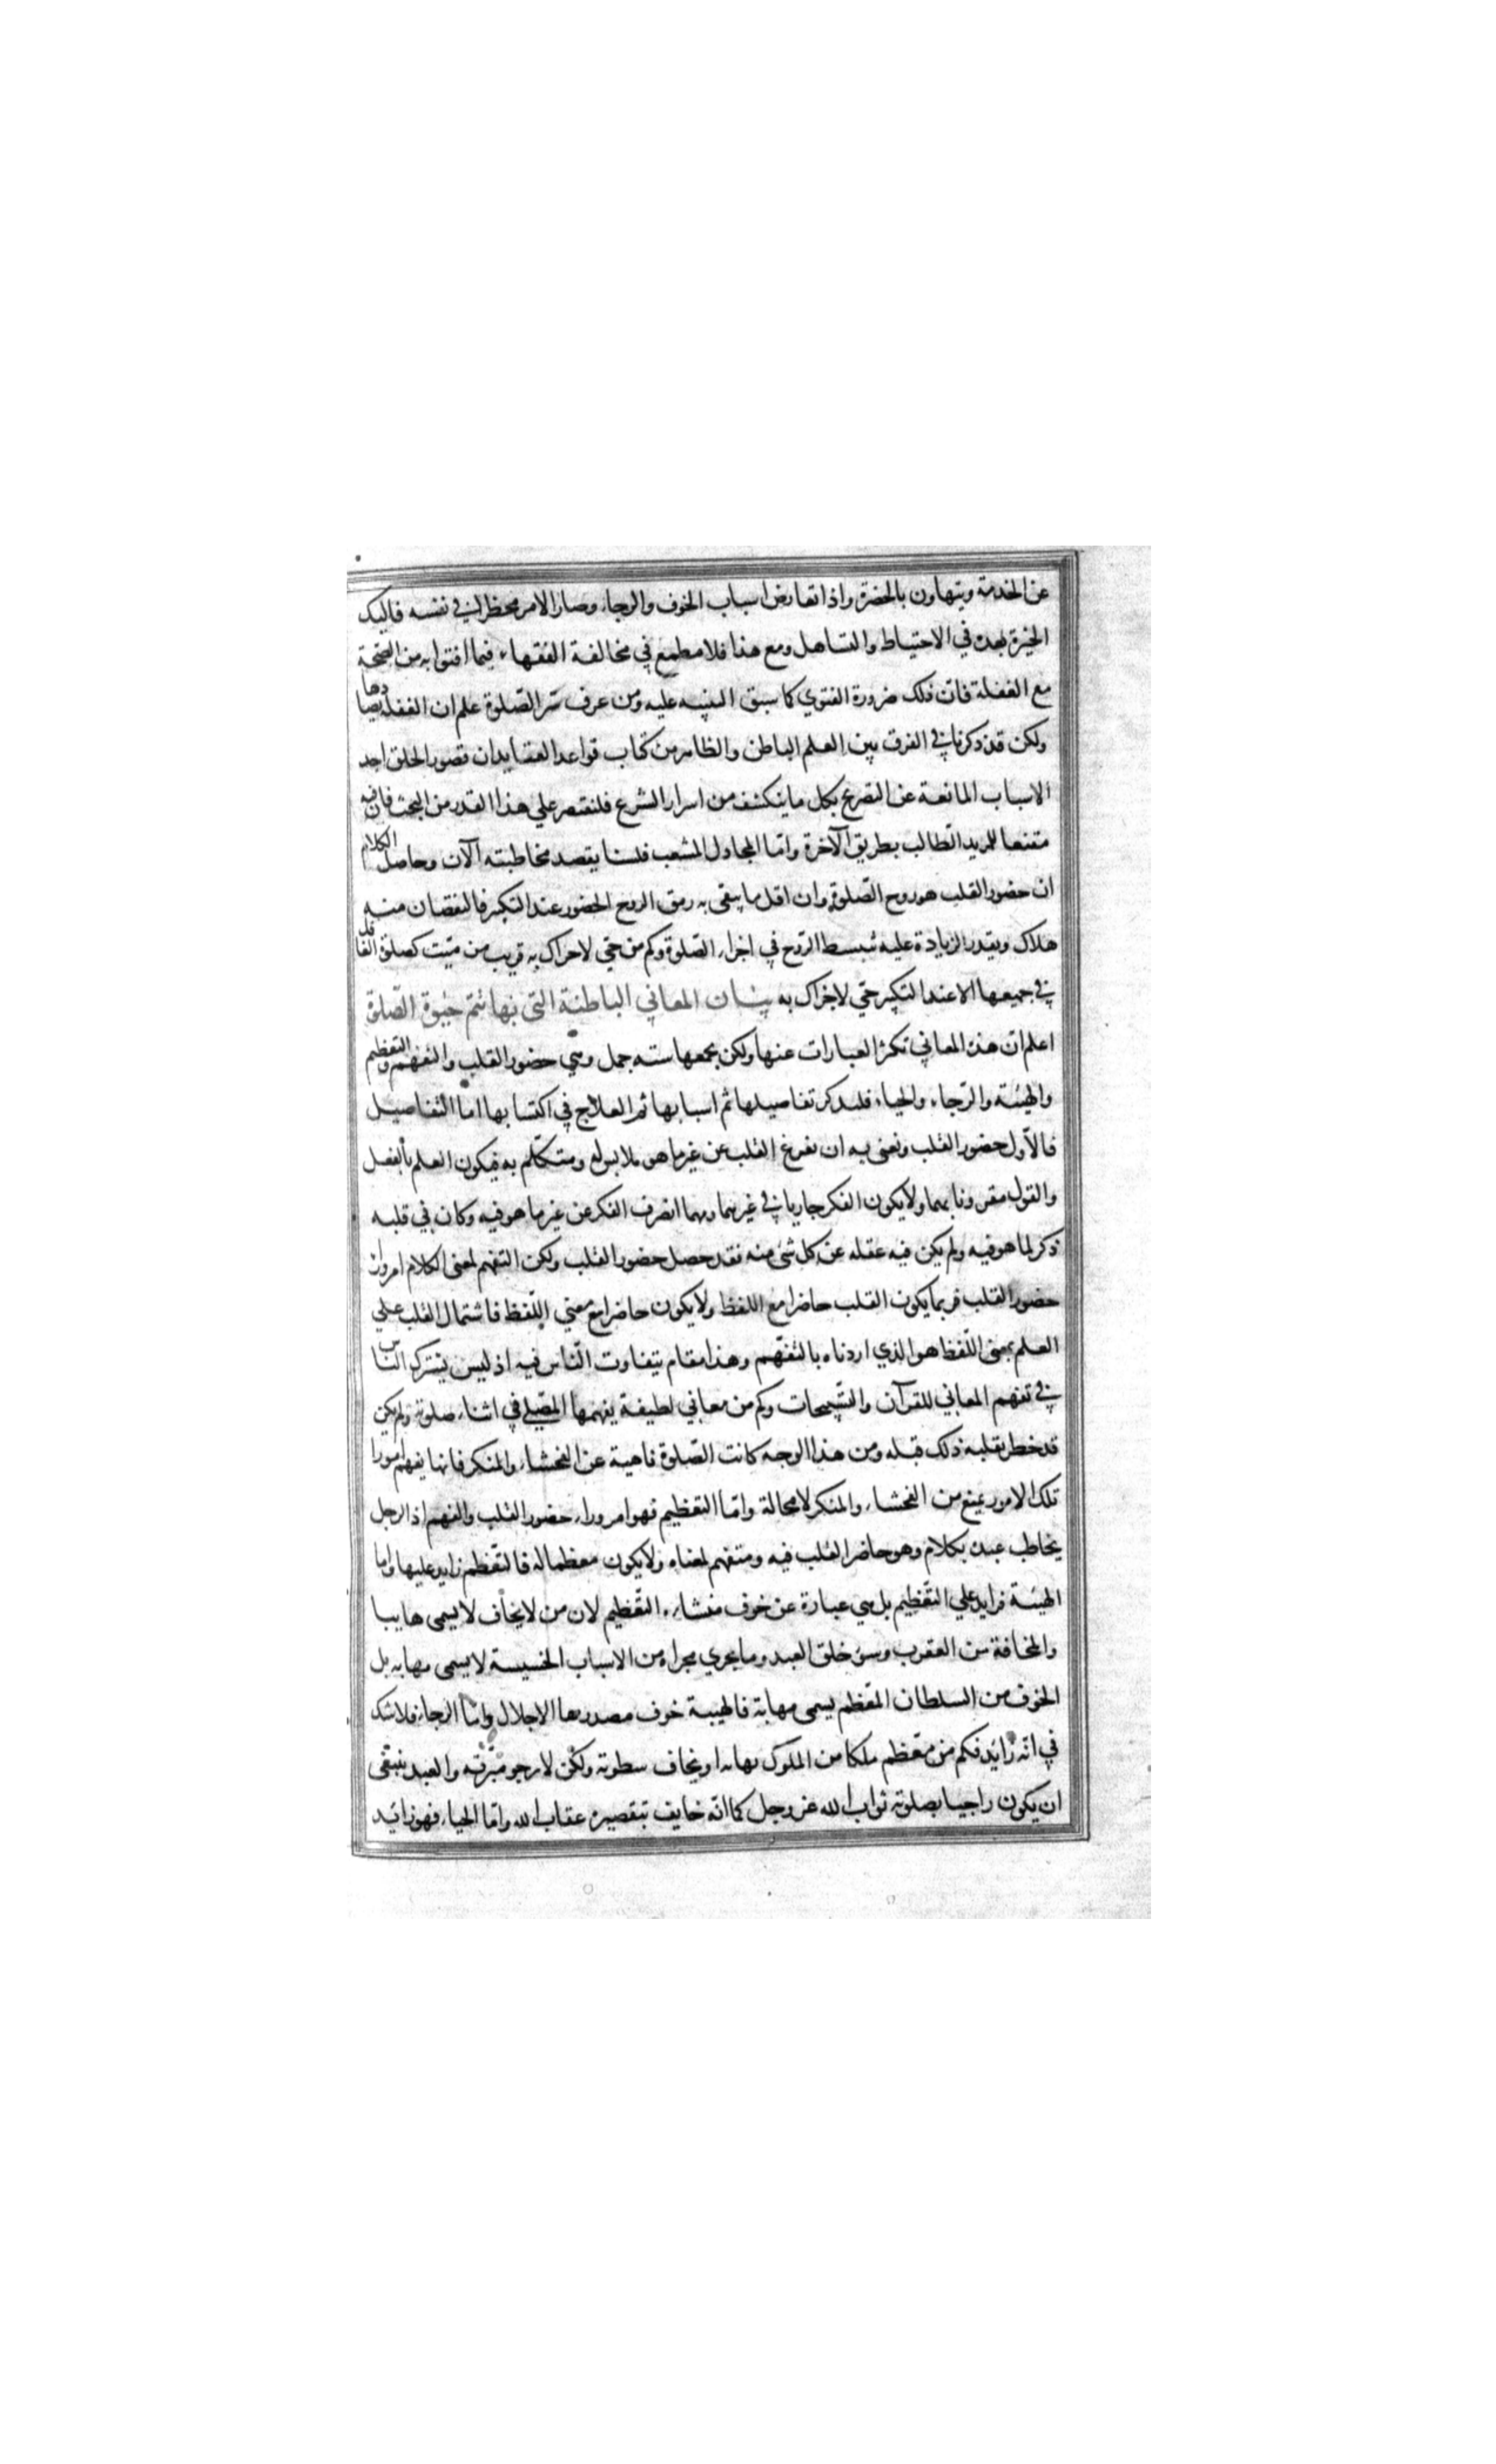 عن الخدمة ويتهاون بالحضرة واذا تعارض اسباب الخوف والرجاء وصار الامر مخطرا في نفسه فاليك
الخيرة بعده في الاحتياط والتساهل ومع هذا فلا مطمع في مخالفة الفقهاء فيما افتوا به من الصحة
مع الغفلة فان ذلك ضرورة الفتوي كما سبق التنبيه عليه ومن عرف سر الصلوة علم ان الغفلة يضادها
ولكن قد ذكرنا في الفرق بين العلم الباطن والظاهر من كتاب قواعد العقايد ان قصور الخلق احد
الاسباب المانعة عن التصريح بكل ما ينكشف من اسرار الشرع فلنقتصر علي هذا القدر من البحث فان فيه
مقنعا للمريد الطالب بطريق الآخرة واما المجادل المشعب فلسنا يقصد مخاطبته الآن وحاصل الكلام
ان حضور القلب هو روح الصلوة وان اقل ما يبقى به رمق الروح الحضور عند التكبير فالنقصان منه
هلاك وبقدر الزيادة عليه تنبسط الروح في اجزاء الصلوة وكم من حي لا حراك به قريب من ميت كصلوة الغافل
في جميعها الا عند التكبير حي لا حراك به بيان المعاني الباطنة التي بها تتم حيوة الصلوة
اعلم ان هذه المعاني تكثر العبارات عنها ولكن يجمعها ستة جمل وهي حضور القلب والتفهم والتعظيم
والهيبة والرجاء والحياء فلنذكر تفاصيلها ثم اسبابها ثم العلاج في اكتسابها اما التفاصيل
فالاول حضور القلب ونعنى به ان نفرغ القلب عن غير ما هو ملابس له ومتكلم به فيكون العلم بالفعل
والقول مقرونا بهما ولا يكون الفكر جاريا في غيرهما ومهما انصرف الفكر عن غير ما هو فيه وكان في قلبه
ذكر لما هو فيه ولم يكن فيه غفلة عن كل شئ منه فقد حصل حضور القلب ولكن التفهم لمعنى الكلام امر وراء
حضور القلب فربما يكون القلب حاضرا مع اللفظ ولا يكون حاضرا مع معنى اللفظ فاشتمال القلب علي
العلم بمعنى اللفظ هو الذي اردناه بالتفهم وهذا مقام يتفاوت الناس فيه اذ ليس يشترك الناس
في تفهم المعاني للقرآن والتسبيحات وكم من معاني لطيفة يفهمها المصلي في اثناء صلوته ولم يكن
قد خطر بقلبه ذلك قبله ومن هذا الوجه كانت الصلوة ناهية عن الفحشاء والمنكر فانها يفهم امورا
تلك الامور يمنع من الفحشاء والمنكر لا محالة واما التعظيم فهو امر وراء حضور القلب والفهم اذ الرجل
يخاطب عبده بكلام وهو حاضر القلب فيه ومتفهم لمعناه ولا يكون معظما له فالتعظيم زايد عليها واما
الهيبة فزايد علي التعظيم بل هي عبارة عن خوف منشاءه التعظيم لان من لا يخاف لا يسمى هايبا
والمخافة من العقرب وسوء خلق العبد وما يجري مجراه من الاسباب الخسيسة لا يسمى مهابه بل
الخوف من السلطان المعظم يسمى مهابة فالهيبة خوف مصدرها الاجلال واما الرجاء فلا شك
في انه زائد فكم من معظم ملكا من الملوك يهابه او يخاف سطوته ولكن لا يرجو مبرته والعبد ينبغى
ان يكون راجيا بصلوته ثواب الله عز وجل كما انه خايف بتقصيره عقاب الله واما الحياء فهو زائد